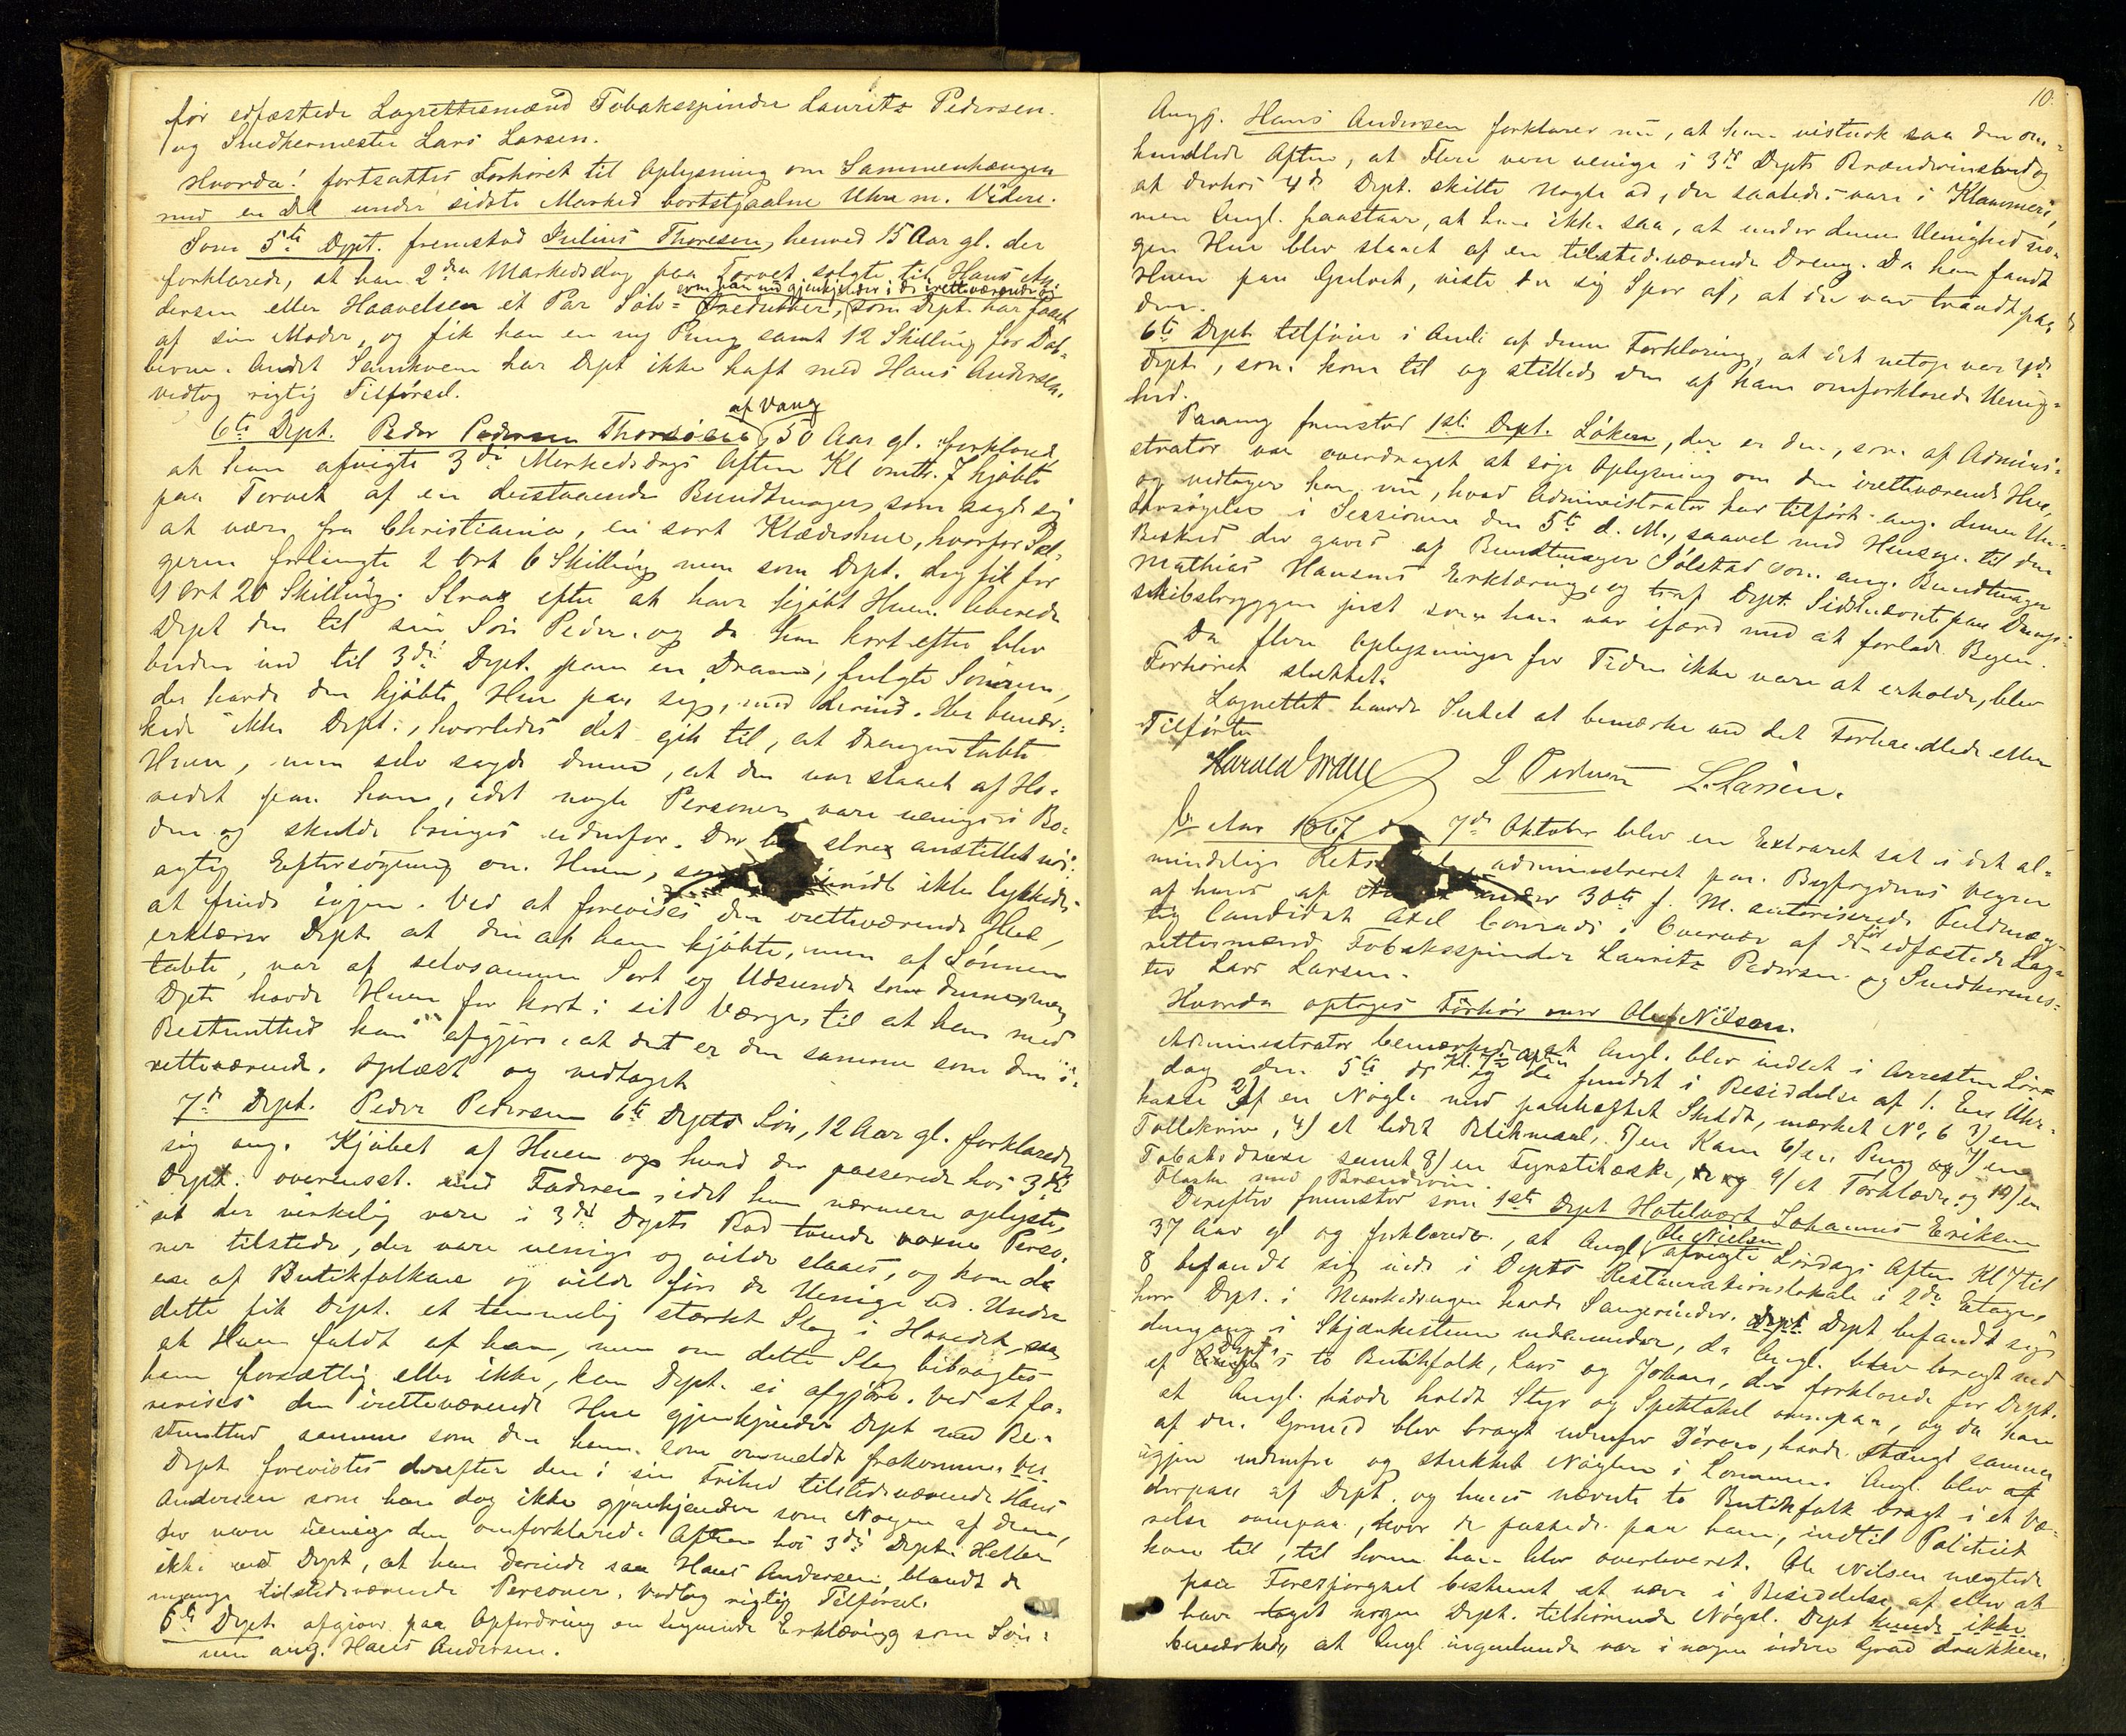 før edfæstede Lagrettesmænd Tobaksspinder Lauritz Pedersen
og Snedkermester Lars Larsen.
Hvorda! fortsattes Forhøret til Oplysning om Sammenhængen
med en Del under sidste Marked bortstjaalne Uhre m. Videre.
Som 5te Dpt. fremstod Julius Thoresen, henved 15 Aar gl. der
forklarede, at han 2den Markedsdag paa Torvet solgte til Hans An-
som han nu gjenkjender i de iretteværende og
dersen eller Haavelsen et Par Sølv- Øredubber, som Dpt. har faaet
af sin Moder, og fik han en ny Pung samt 12 Skilling for Døb-
berne. Andet Samkvem har Dpt ikke haft med Hans Andersen.
Vedtog rigtig Tilførsel.
af Vang
6te Dept. Peder Pedersen Thorsøen, 50 Aar gl. forklared,
at han afvigte 3die Markedsdags Aften Kl omtr. 7 kjøbte
paa Torvet af en derstaaende Bundtmager, som sagde sig
at være fra Christiania, en sort Klædeshue, hvorfor Sæl-
geren forlangte 2 Ort 6 Skilling men som Dpt. dog fik for
1 Ort 20 Skilling. Strax efter at have kjøbt Huen leverede
Dept den til sin Søn Peder, og da han kort efter blev
buden ind til 3die Dept. paa en Dram, fulgte Sønnen,
der havde den kjøbte Hue paa sig, med derind. Her bemær-
kede ikke Dept., hvorledes det gik til, at Drengen tabte
Huen, men selv sagde denne, at den var slaaet af Ho-
vedet paa ham, idet nogle Personer vare uenige i Bo-
den og skulde bringes udenfor. Der strax anstillet nøi-
agtig Eftersøgning om Huen, ikke lykkedes
at finde igjen. Ved at forevises den iretteværende Hue,
erklærer Dept. at den af ham kjøbte, men af Sønnen
tabte, var af selvsamme Sort og Udseende som denne, men
Dpt. havde Huen for kort i sit Værge, til at han med
Bestemthed kan afgjøre, at det er den samme som den i-
retteværende. Oplæst og vedtaget
7de Dept. Peder Pedersen 6te Depts Søn, 12 Aar gl. forklarede
sig ang. Kjøbet af Huen og hvad der passerede hos 3die
Dept. overensst. med Faderen, idet han nærmere oplyste,
at der virkelig vare i 3die Depts Bod tvende voxne Perso-
ner tilstede, der vare uenige og vilde slaaes, og kom da
en af Butikfolkene og vilde føre de Uenige ud. Under
dette fik Dept. et temmelig stærkt Slag i Hovedet, saa
at Huen faldt af ham, men om dette Slag bibragtes
ham forsætlig eller ikke, kan Dept. ei afgjøre. Ved at fo-
revises den iretteværende Hue gjenkjender Dept med Be-
stemthed samme som den ham som ommeldt frakomne.
Dept forevistes derefter den i sin Frihed tilstedeværende Hans
Andersen som han dog ikke gjenkjender som Nogen af dem,
der vare uenige den omforklarede Aften hos 3die Dept. Heller
ikke ved Dept, at han derinde saa Hans Andersen blandt de
mange tilstedeværende Personer. Vedtog rigtig Tilførsel.
6te Dept afgiver paa Opfordring en lignende Erklæring som Søn-
nen ang. Hans Andersen.
10.
Angj. Hans Andersen forklarer nu, at han vistnok saa den om-
handlede Aften, at Flere vare uenige i 3die Depts Brændevinsbod og
at derhos 4de Dept. skilte Nogle ad, der saaledes vare i Klammeri,
men Angl. paastaar, at han ikke saa, at under denne Uenighed no-
gen Hue blev slaaet af en tilstedeværende Dreng. Da han fandt
Huen paa Gulvet, viste der sig Spor af, at der var traadt paa
den.
6te Dept. tilføier i Anl. af denne Forklaring, at det netop var 4de
Dept, som kom til og stillede den af ham omforklarede Uenig-
hed.
Paany fremstod 1ste Dept. Løken, der er den, som af Admini-
strator var overdraget at søge Oplysning om den iretteværende Hue,
og vedtager han nu, hvad Administrator har tilført ang. denne Un-
dersøgelse i Sessionen den 5te d. M., saavel med Hensyn til den
Besked der gaves af Bundtmager Sølstad som ang. Bundtmager
Mathias Hansens Erklæring, og traf Dept. Sidstnævnte paa Damp-
skibsbryggen just som han var ifærd med at forlade Byen.
Da flere Oplysninger for Tiden ikke vare at erholde, blev
Forhøret sluttet.
Lagrettet havde Intet at bemærke ved det Forhandlede eller
Tilførte
Harald L Pedersen L. Larsen.
Aar 1867 den 7de Oktober blev en Extraret sat i det al-
mindelige administreret paa Byfogdens Vegne
af hans af under 30te f. M. autoriserede Fuldmæg-
tig Candidat Axel Conradi i Overvær af de før edfæstede Lag-
rettesmænd Tobaksspinder Lauritz Pedersen og Snedkermes-
ter Lars Larsen.
Hvorda optoges Forhør over Ole Nilsen.
Administrator bemærkede, at Angl. blev indsat i Arresten Lør-
Kl. 7 Aften
dag den 5te ds og da fandt i Besiddelse af 1. En Uhr-
kasse 2/ af en Nøgle med paahæftet Skildt, mærket No. 6 3/ en
Tollekniv, 4/ et lidet Blikmaal, 5/ en Kam 6/ en Pung og 7/ en
Tobaksdaase samt 8/ en Fyrstikæske, og 9/ et Torklæde og 10/ en
Flaske med Brændevin.
Derefter fremstod som 1ste Dept Hotelvært Johannes Eriksen
Ole Nielsen
37 Aar gl og forklarede, at Angl. afvigte Lørdags Aften Kl 7 til
8 befandt sig inde i Depts Restaurationslokale i 2de Etage,
hvor Dept. i Markedsdagen havde Sangerinder. Dept befandt sig
dengang i Skjænkestuen nedenunder, da Angl. blev bragt ned
Depts
af to Butikfolk, Lars og Johan, der forklarede for Dept.
at Angl. havde holdt Styr og Spektakel ovenpaa, og da han
af den Grund blev bragt udenfor Døren, havde stængt samme
igjen udenfra og stukket Nøglen i Lommen. Angl. blev
derpaa af Dept. og hans nævnte to Butikfolk bragt i et Væ-
relse ovenpaa, hvor de passede paa ham, indtil Politiet
kom til, til hvem han blev overleveret. Ole Nilsen nægtede
paa Forespørgsel bestemt at være i Besiddelse af eller at
have taget nogen Dept. tilhørende Nøgel. Dept kunde ikke
bemærke, at Angl ingenlunde var i nogen videre Grad drukken.